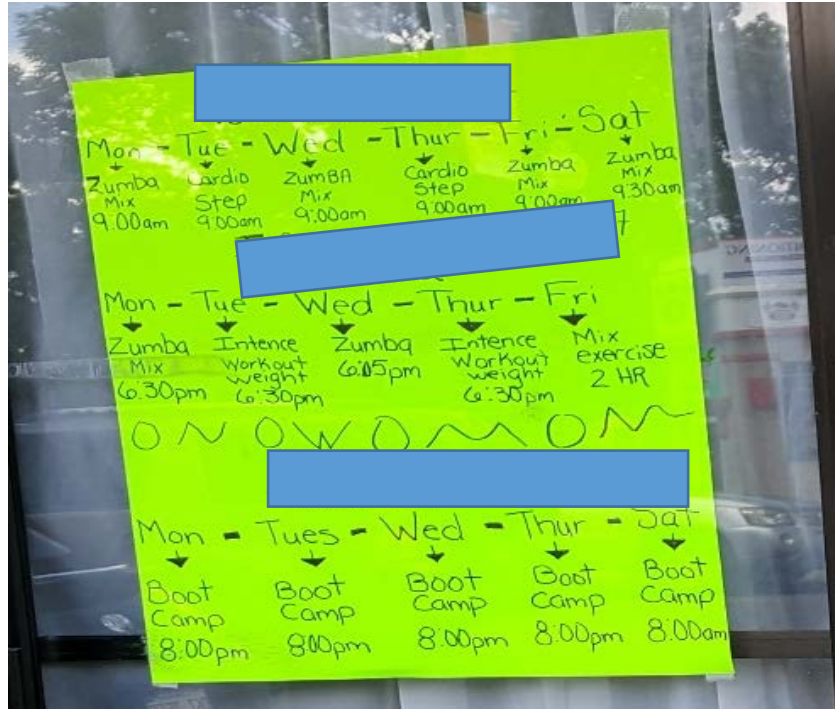 Mon - Tue - Wed - Thur - Fri - Sat
Zumba Mix 9:00am
Cardio Step 9:00am
ZumBA Mix 9:00am
Cardio Step 9:00am
Zumba Mix 9:00am
Zumba Mix 9:30am
Mon - Tue - Wed - Thur - Fri
Zumba Mix 6:30pm
Intence Workout weight 6:30pm
Zumba 6:05pm
Intence Workout weight 6:30pm
Mix exercise 2 HR
Mon - Tues - Wed - Thur - Sat
Boot Camp 8:00pm
Boot Camp 8:00pm
Boot Camp 8:00pm
Boot Camp 8:00pm
Boot Camp 8:00am